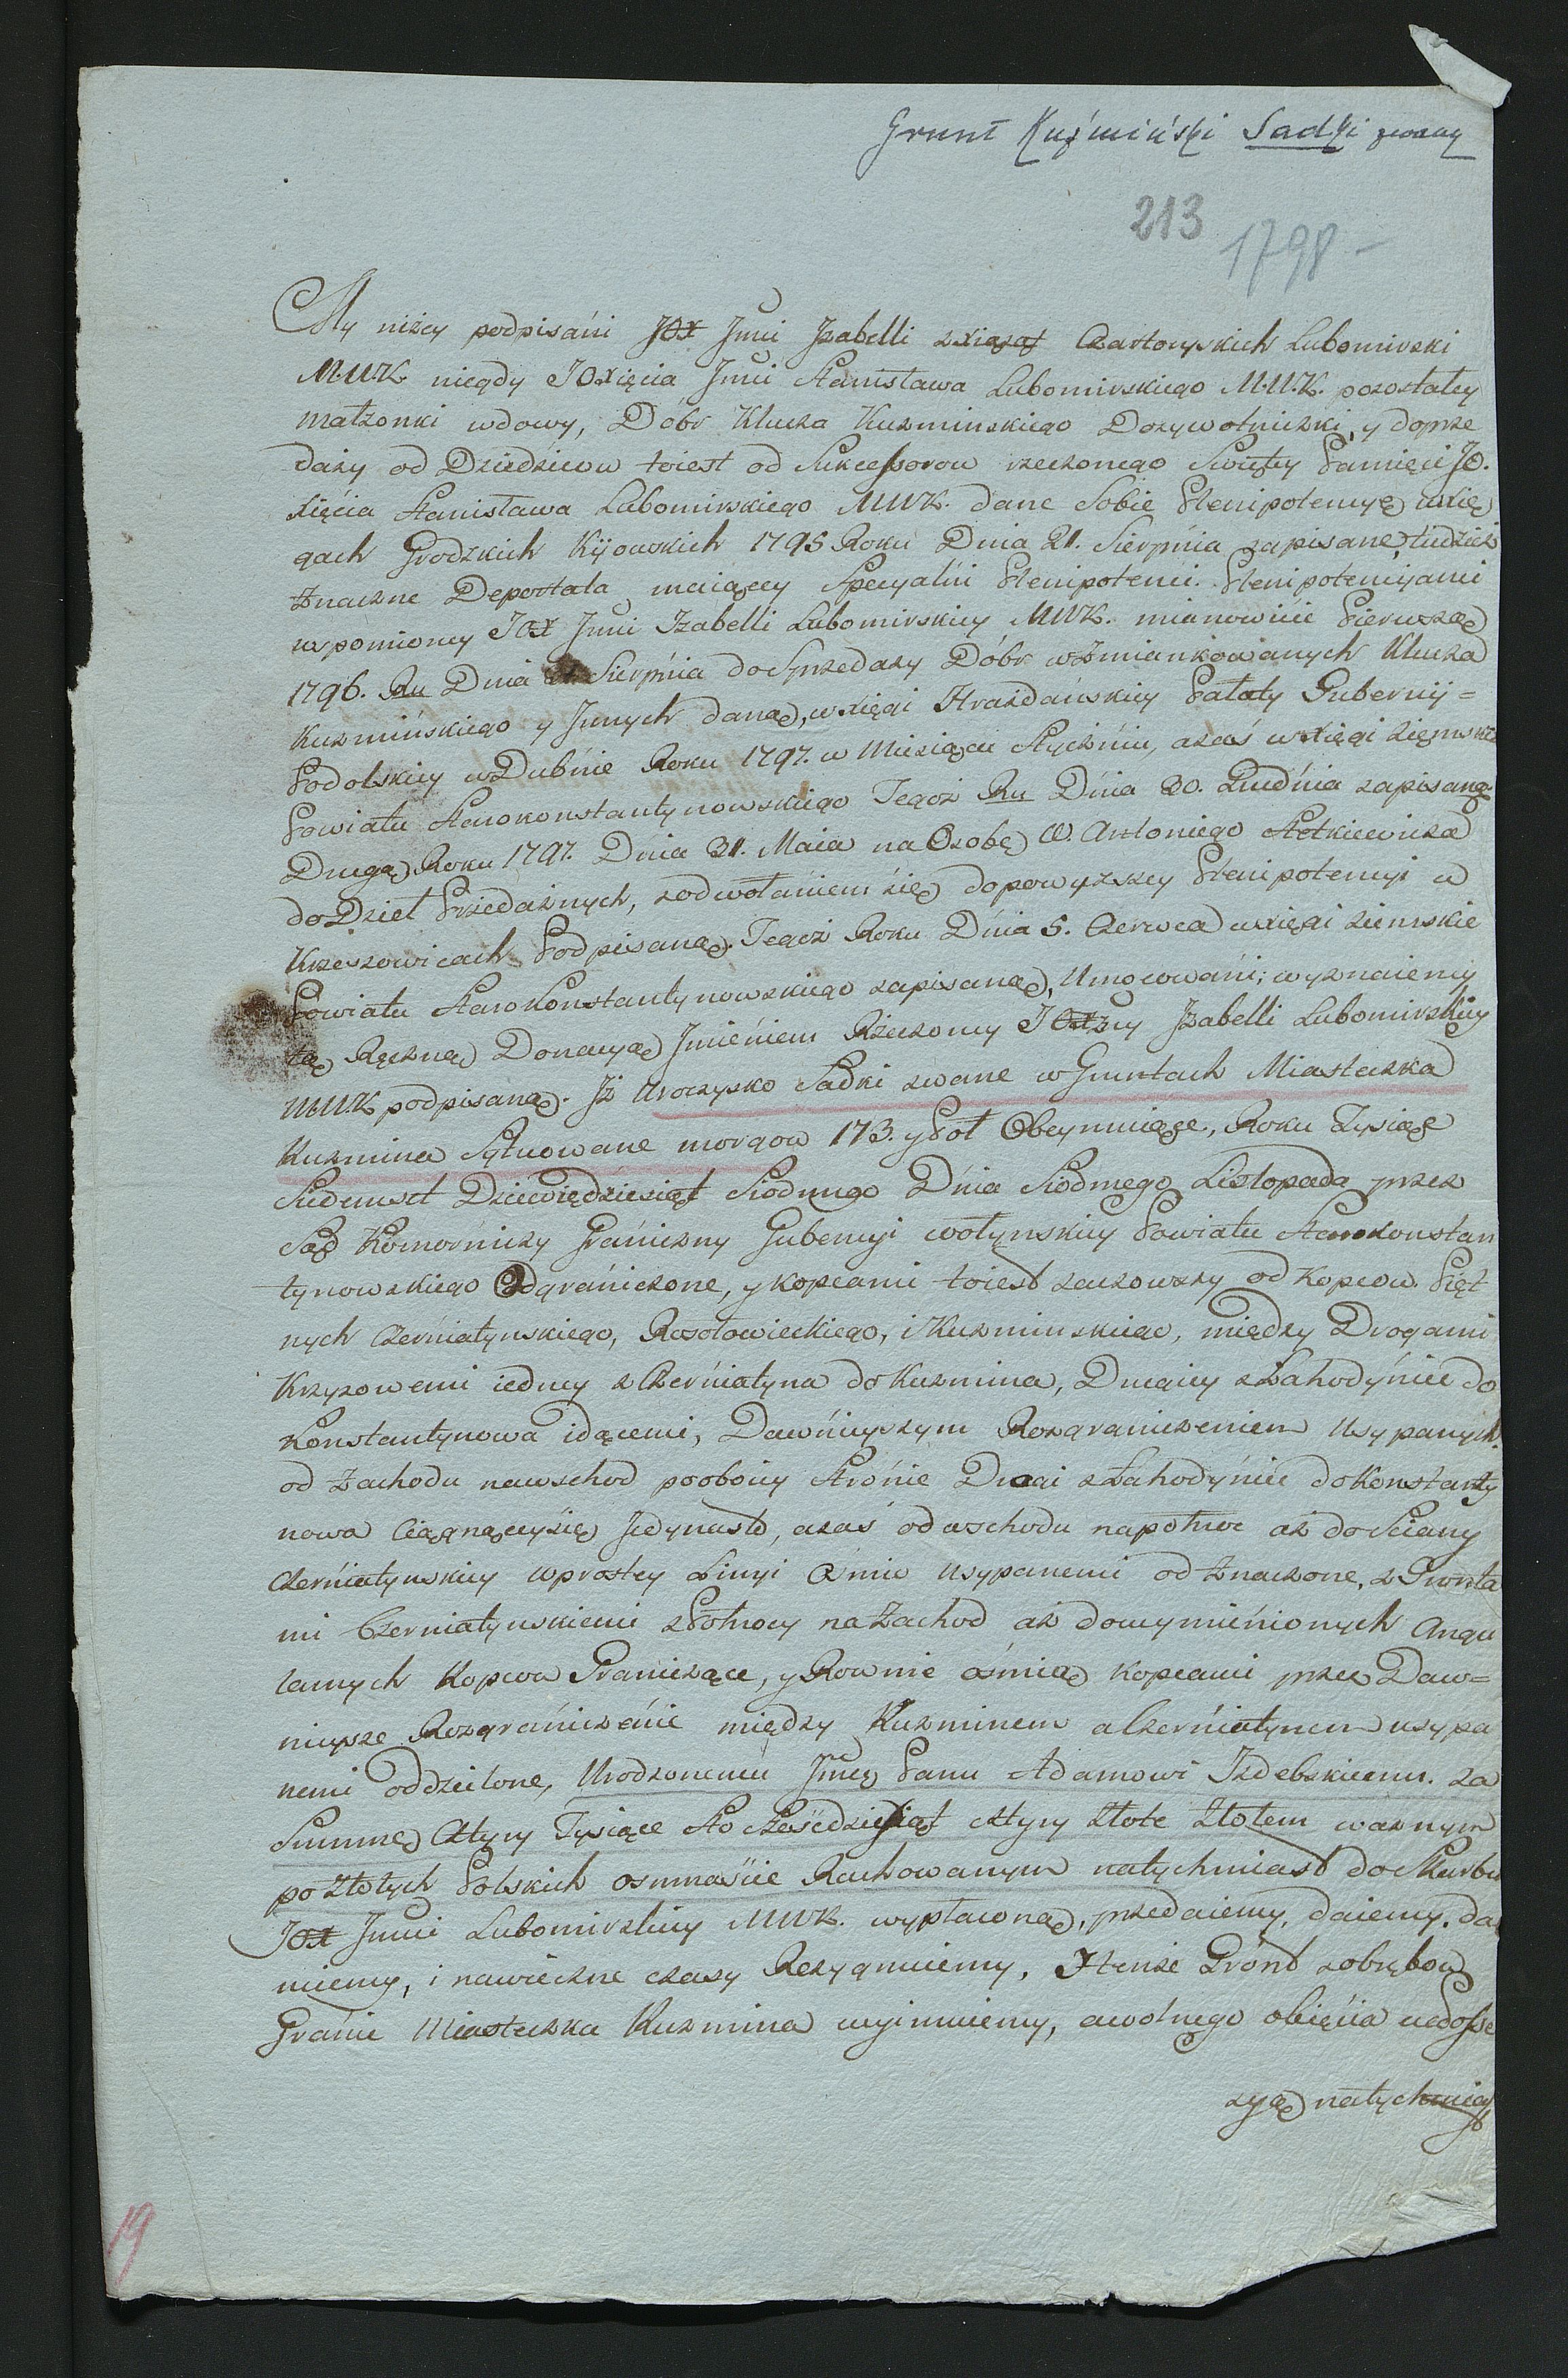 Grunt Kuźmiński Sadki zwany
213
1798 -
My niżey podpisáni JOX Jmci Jzabelli z xiąząt Czartoryskich Lubomirski
M.W.K. niegdy JOxięcia Jmci Stanisława Lubomirskiego M.W.K. pozostałey
małżonki wdowy, Dóbr Klucza Kuzminskiego Dozywotniczki, y doprze
daży od Dziedzicow toiest od Sukcessorow rzeczonego Swiętey Pamięci JO.
xięcia Stanisława Lubomirskiego MWK. dane Sobie Plenipotencyę w xię
gach Grodzkich Kijowskich 1795 Roku Dnia 21. Sierpnia zapisane, tudzież
znaczne Deportata maiącey Specyalni Plenipotenci. Plenipotencyami
wspomioney JOX Jmci Izabelli Lubomirskiey MWK. mianowicie Pierwszą
1796. Ru Dnia Sierpnia do Sprzedazy Dóbr wzmiankowanych Klucza
Kuzmińskiego y Jnnych daną, w xięgi Hrażdańskiey Pałaty Gubernij=
Podolskiey w Dubnie Roku 1797. w Miesiącu Styczniu, azaś w xięgi ziemskie
Powiatu Starokonstantynowskiego Tegoż Ru Dnia 30. Grudnia zapisaną
Drugą Roku 1797. Dnia 31. Maia na Osobę W. Antoniego Stetkiewicza
do Dzieł Przedażnych, zodwołaniem się do powyższey Plenipotencyi w
Krzeszowicach Podpisaną. Tegoż Roku Dnia 5. Czerwca w xięgi ziemskie
Powiatu Starokonstantynowskiego zapisaną, Umocowani; wyznaiemy
tą Ręczną Donacyą Jmieniem Rzeczoney JOXzny Jzabelli Lubomirskiey
MWK podpisaną. Jż Uroczysko Sadki zwane w Gruntach Miasteczka
Kuzmina Sytuowane morgow 173. y Poł Obeymuiące, Roku Tysiąc
Siedemset Dziewiędziesiąt Siodmego Dnia Siodmego Listopada przez
Sąd Komorniczy Graniczny Gubernyi wołynskiey Powiatu Starokonstan
tynowskiego Odgraniczone, y kopcami toiest zacząwszy od Kopcow Pięt
nych Czerniatynskiego, Rosołowieckiego, i Kuzminskiego, między Drogami
Krzyzowemi iedney z Czerniatyna do Kuzmina, Drugiey z Zahodyniec do
Konstantynowa idącemi, Dawnieyszym Rozgraniczeniem Usypanych
od zachodu nawschod po obiey Stronie Drogi z Zahodyniec do Konstanty
nowa Ciągnącey się Jedynastą, azaś od wschodu napołnoc aż do Sciany
Czerniatynskiey wprostey Linyi Osmio usypanemi odznaczone, z Grunta
mi Czerniatynskiemi z Połnocy na zachod aż do wymienionych Angu
larnych Kopcow Graniczące, y Rownie osmią Kopcami przez Daw=
nieysze Rozgraniczenie między Kuzminem a Czerniatynem usypa
nemi oddzielone, Urodzonemu Jmcy Panu Adamowi Izdebskiemu. za
Summę Cztyry Tysiące Sto Sześćdziesiąt cztyry złote złotem waznym
po złotych Polskich osmnaście Rachowanym natychmiast do Skarbu
JOX Jmci Lubomirskiey MWK. wypłaconą, przedaiemy, daiemy, da
ruiemy, i nawieczne czasy Rezygnuiemy, Y tenże Grónt z obrębow
Granic Miasteczka Kuzmina wyimuiemy, a wolnego obięcia w Posse
ssyą natychmias
19